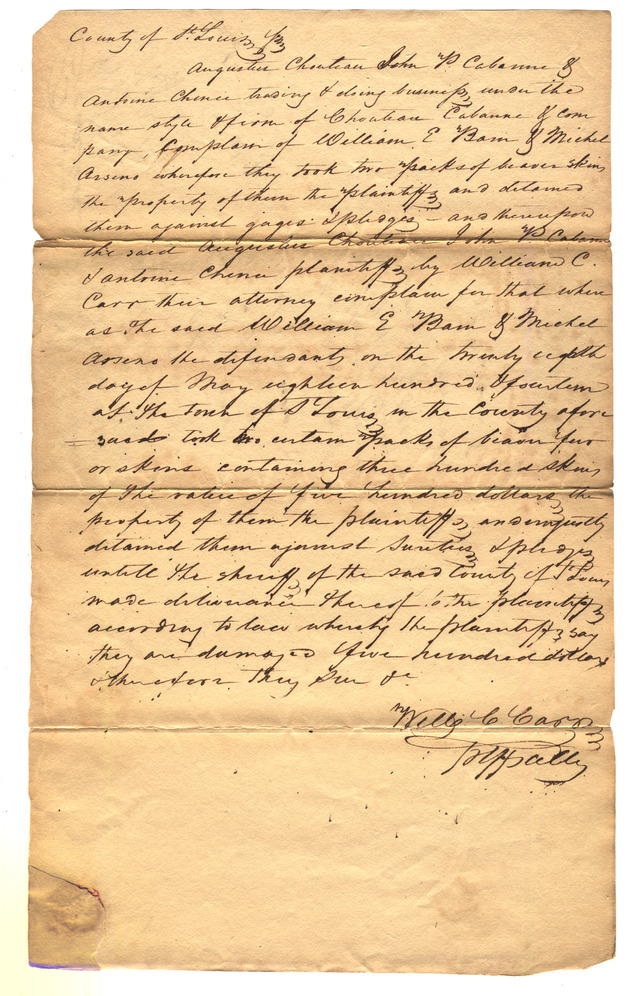 County of St. Louis, Ss
Augustus Chouteau John P. Cabanne &
Antoine Chenie trading & doing business, under the
name style & firm of Chouteau Cabanne & com
pany, Complain of William E Bam & Michel
Arseno wherefore they took two packs of beaver skins
the property of them the plaintiffs and detained
them against gages & pledges - and thereupon
the said Augustus Chouteau John P Cabanne
& antoine Chenie plaintiffs by William C.
Carr their attorney complain for that where
as the said William E Bam & Michel
Arseno the defendants on the twenty eighth
day of May eighteen hundred & fourteen
at the town of St Louis, in the County afore
said took two certain packs of beaver fur
or skins containing three hundred skins
of the value of five hundred dollars, the
property of them the plaintiffs, and unjustly
detained them against sureties & pledges
untill the sheriff of the said County of St Louis
made deliverance thereof to the plaintiffs
according to law whereby the plaintiffs say
they are damaged five hundred dollars
& therefore they sue &c
Will C Carr